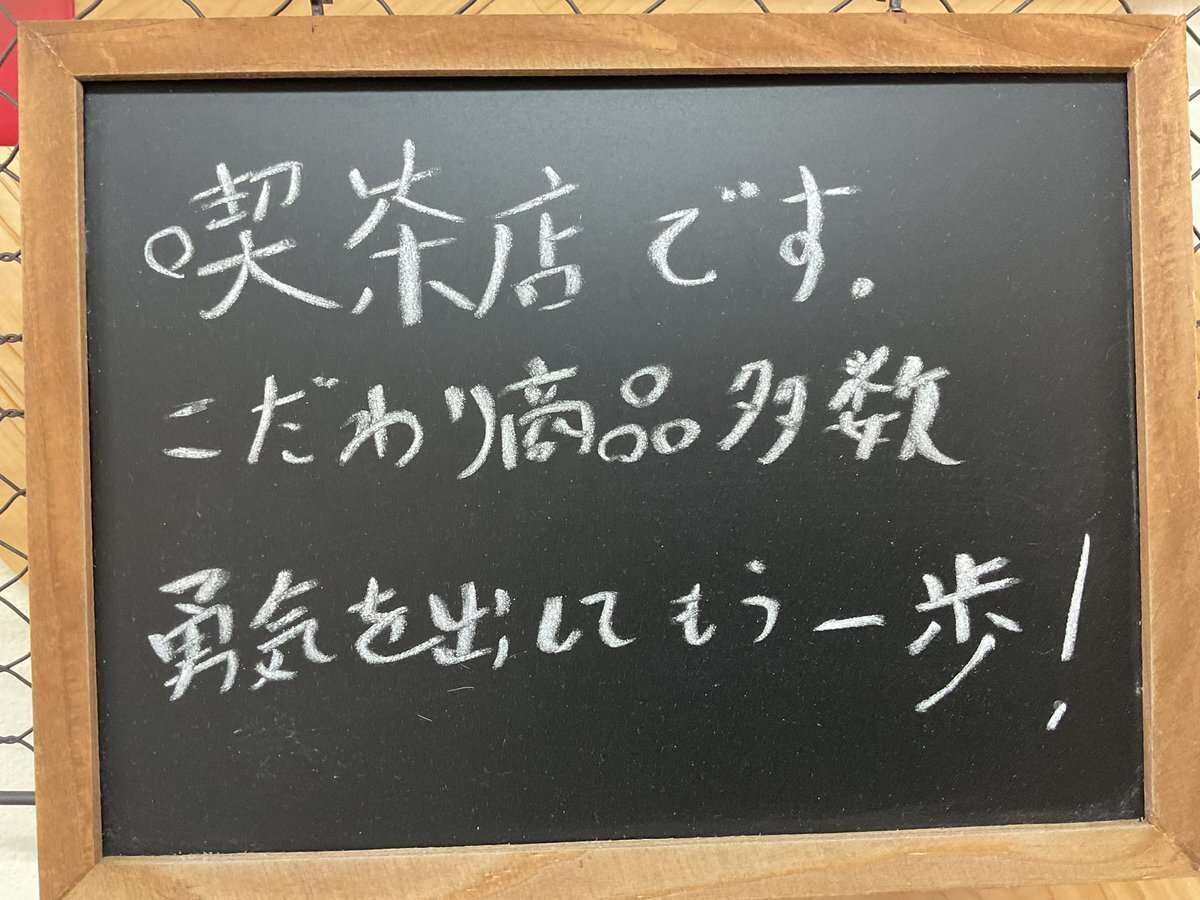 喫茶店です.
こだわり商品多数
勇気を出してもう一歩!